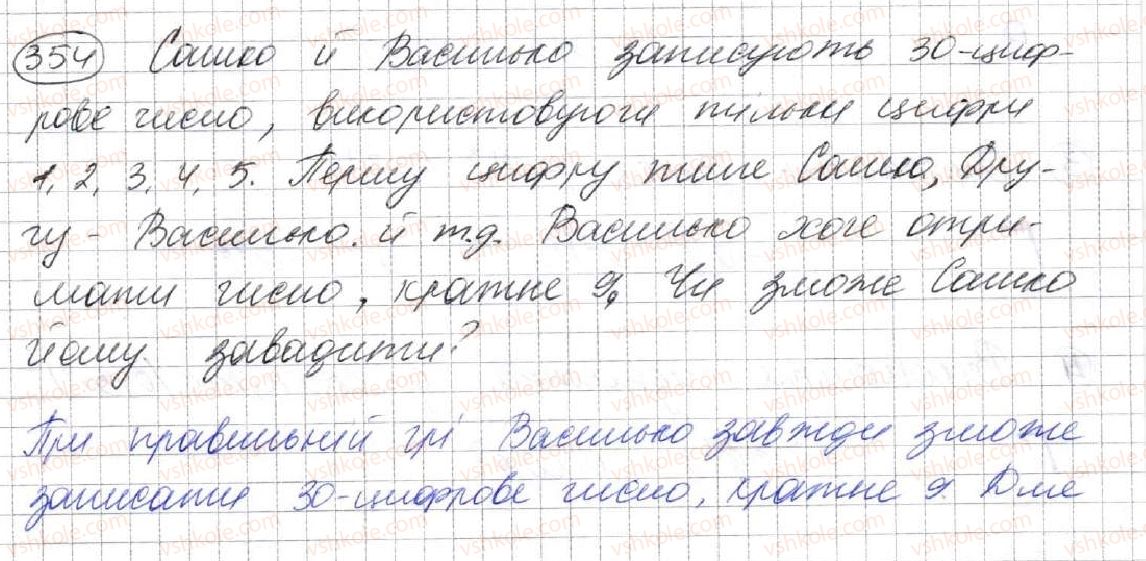 354 Сашко й Василько записують 30-циф-
рове число, використовуючи тільки цифри
1, 2, 3, 4, 5. Першу цифру пише Сашко, Дру-
гу - Василько. й т.д. Василько хоче отри-
мати число, кратне 9. Чи зможе Сашко
йому завадити?
При правильній грі Василько завжди зможе
записати 30-цифрове число, кратне 9. Для